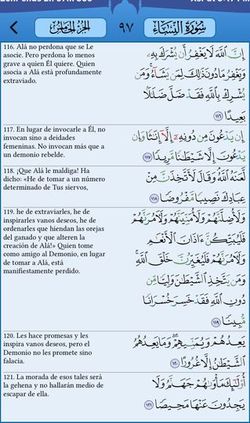 سُورَةُ النِّسَاءِ
٩٧
الجزء الخامس
116. Alá no perdona que se Le
asocie. Pero perdona lo menos
grave a quien Él quiere. Quien
asocia a Alá está profundamente
extraviado.
إِنَّ ٱللَّهَ لَا يَغْفِرُ أَن يُشْرَكَ بِهِۦ
وَيَغْفِرُ مَا دُونَ ذَٰلِكَ لِمَن يَشَآءُ وَمَن
يُشْرِكْ بِٱللَّهِ فَقَدْ ضَلَّ ضَلَـٰلًۢا
بَعِيدًا ١١٦
117. En lugar de invocarle a Él, no
invocan sino a deidades
femeninas. No invocan más que a
un demonio rebelde.
إِن يَدْعُونَ مِن دُونِهِۦٓ إِلَّآ إِنَـٰثًا وَإِن
يَدْعُونَ إِلَّا شَيْطَـٰنًا مَّرِيدًا ١١٧
118. ¡Que Alá le maldiga! Ha
dicho: «He de tomar a un número
determinado de Tus siervos,
لَّعَنَهُ ٱللَّهُ وَقَالَ لَأَتَّخِذَنَّ مِنْ
عِبَادِكَ نَصِيبًا مَّفْرُوضًا ١١٨
119. he de extraviarles, he de
inspirarles vanos deseos, he de
ordenarles que hiendan las orejas
del ganado y que alteren la
creación de Alá!» Quien tome
como amigo al Demonio, en lugar
de tomar a Alá, está
manifiestamente perdido.
وَلَأُضِلَّنَّهُمْ وَلَأُمَنِّيَنَّهُمْ وَلَـَٔامُرَنَّهُمْ
فَلَيُبَتِّكُنَّ ءَاذَانَ ٱلْأَنْعَـٰمِ
وَلَـَٔامُرَنَّهُمْ فَلَيُغَيِّرُنَّ خَلْقَ ٱللَّهِ
وَمَن يَتَّخِذِ ٱلشَّيْطَـٰنَ وَلِيًّا مِّن
دُونِ ٱللَّهِ فَقَدْ خَسِرَ خُسْرَانًا
مُّبِينًا ١١٩
120. Les hace promesas y les
inspira vanos deseos, pero el
Demonio no les promete sino
falacia.
يَعِدُهُمْ وَيُمَنِّيهِمْ وَمَا يَعِدُهُمُ
ٱلشَّيْطَـٰنُ إِلَّا غُرُورًا ١٢٠
121. La morada de esos tales será
la gehena y no hallarán medio de
escapar de ella.
أُو۟لَـٰٓئِكَ مَأْوَىٰهُمْ جَهَنَّمُ وَلَا
يَجِدُونَ عَنْهَا مَحِيصًا ١٢١